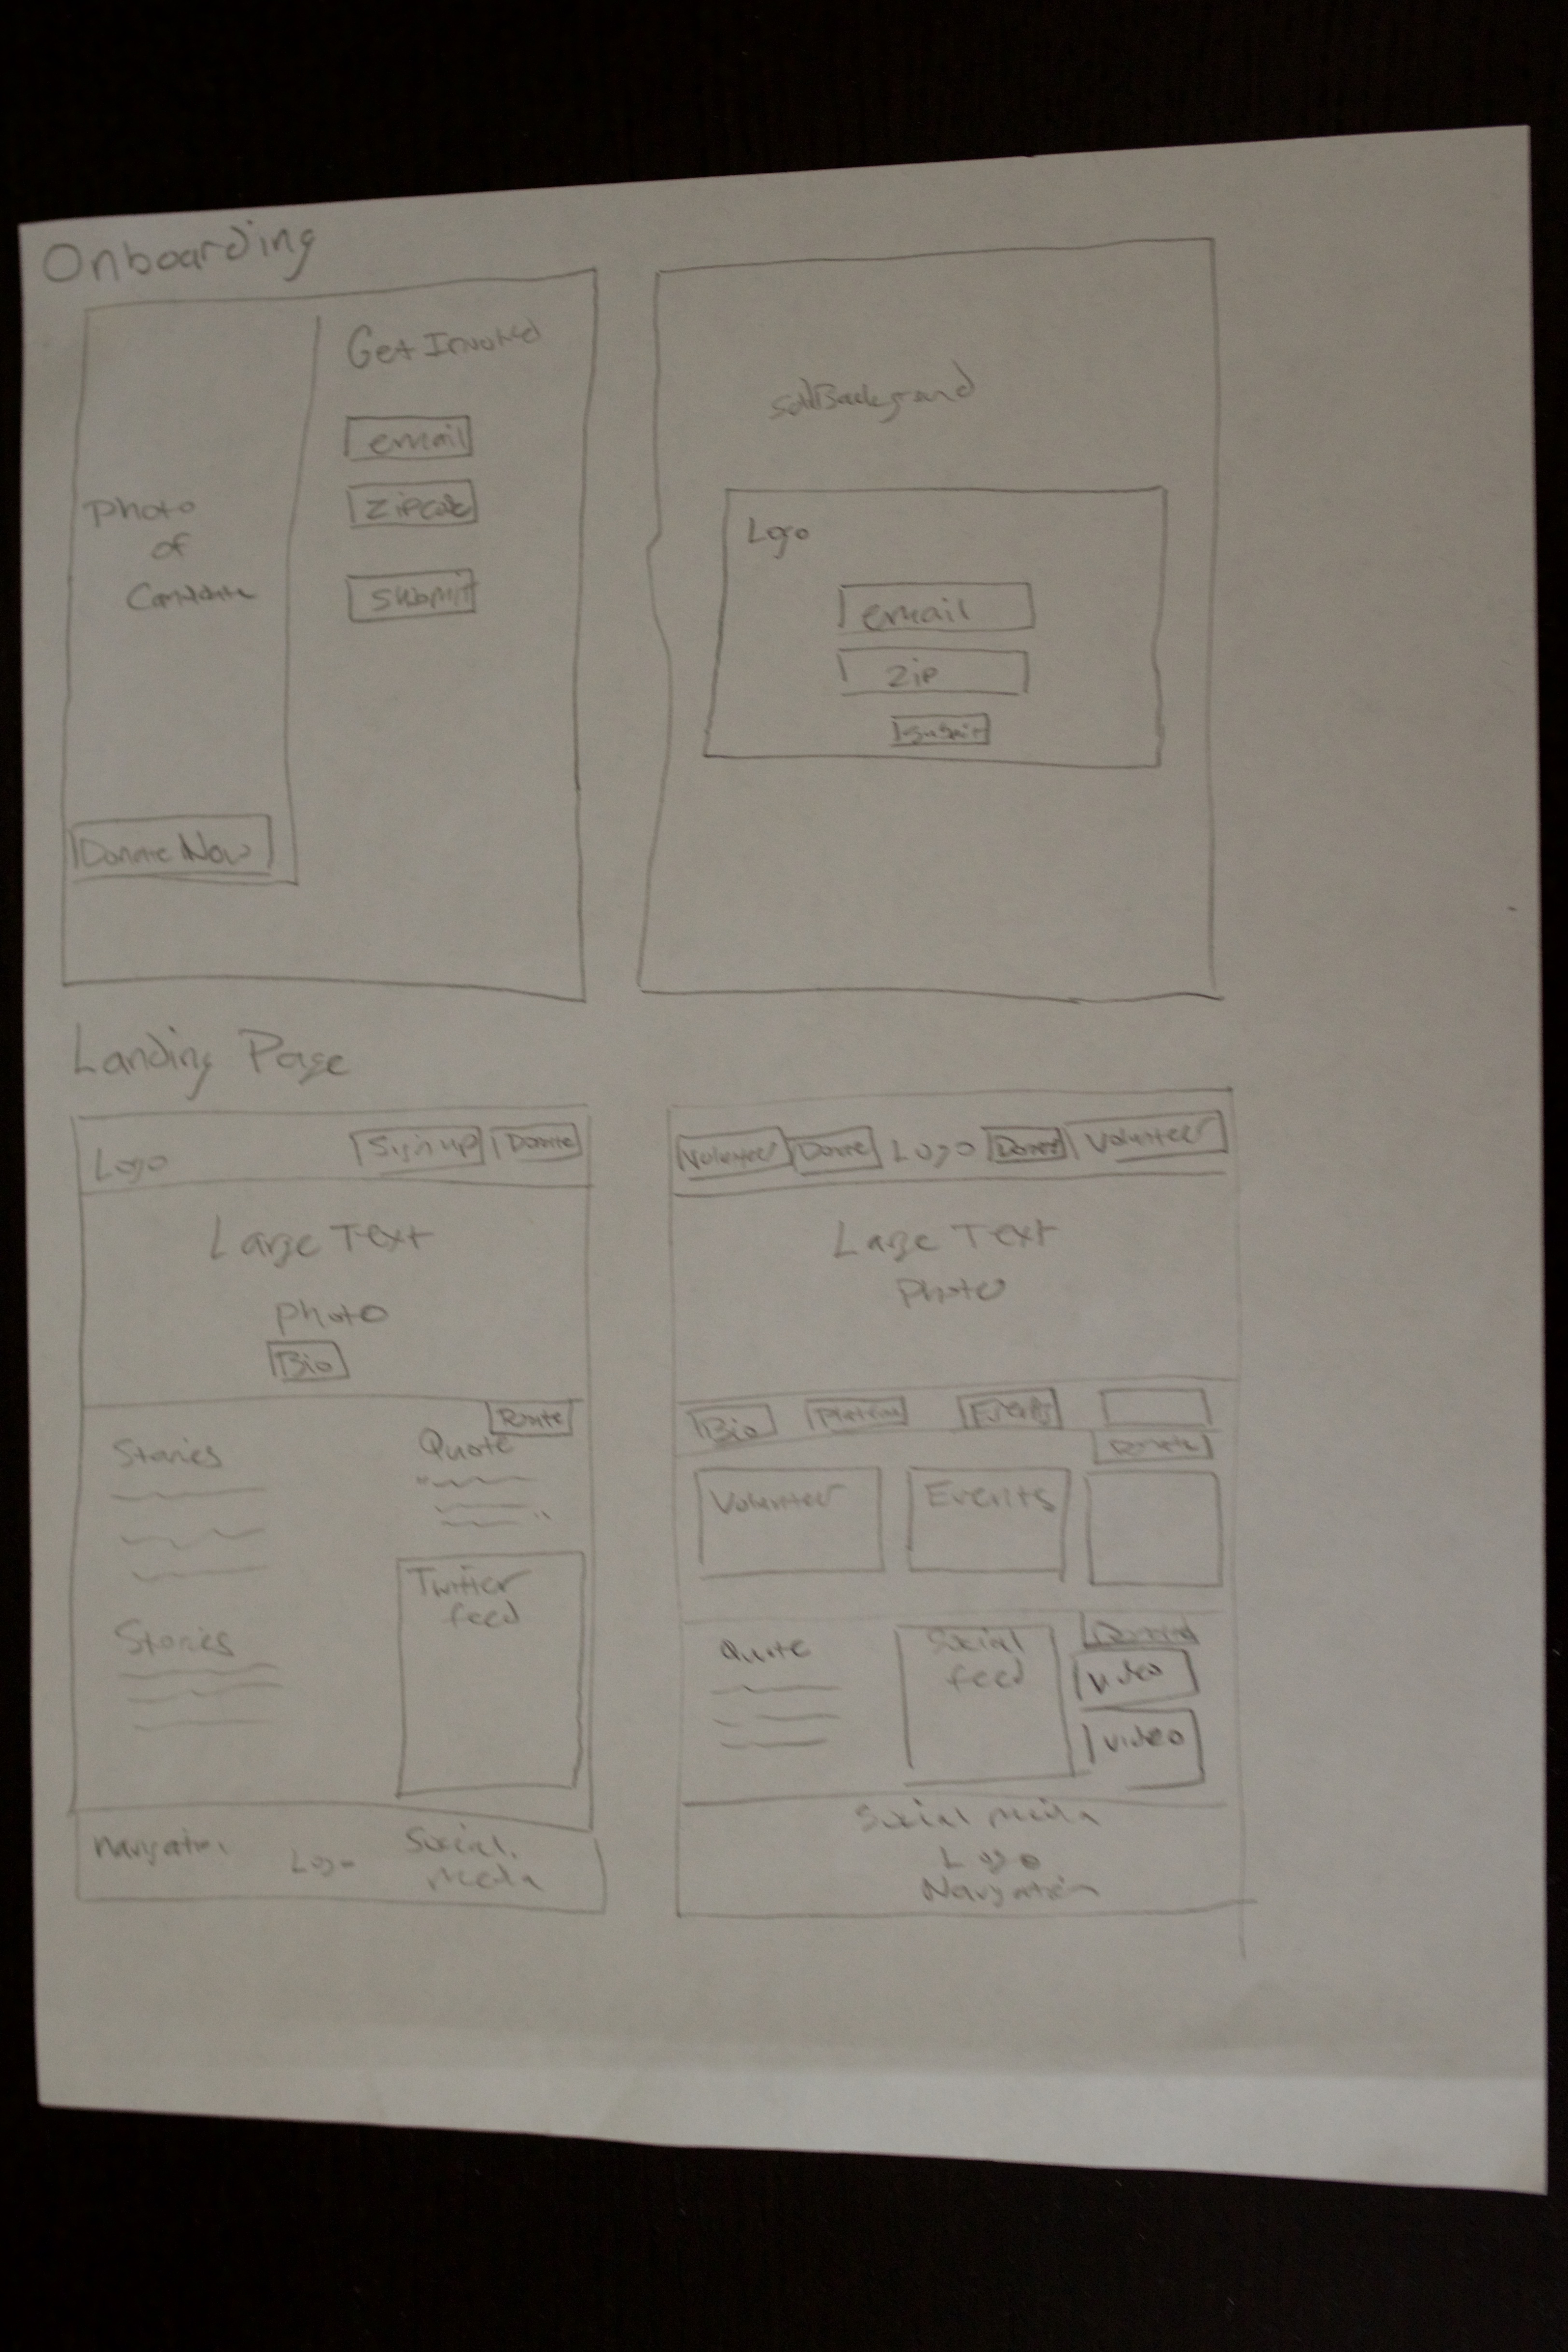 Onboarding
Get Involved
email
zipcode
submit
Photo
of
Candidate
Donate Now
Solid Background
Logo
email
zip
submit
Landing Page
Logo
Sign up
Donate
Large Text
photo
Bio
Donate
Stories
Quote
Twitter
feed
Stories
Navigation
Logo
Social
media
Volunteer
Donate
Logo
Donate
Volunteer
Large Text
Photo
Bio
Platform
Events
Donate
Volunteer
Events
Quote
Social
feed
video
video
Social media
Logo
Navigation